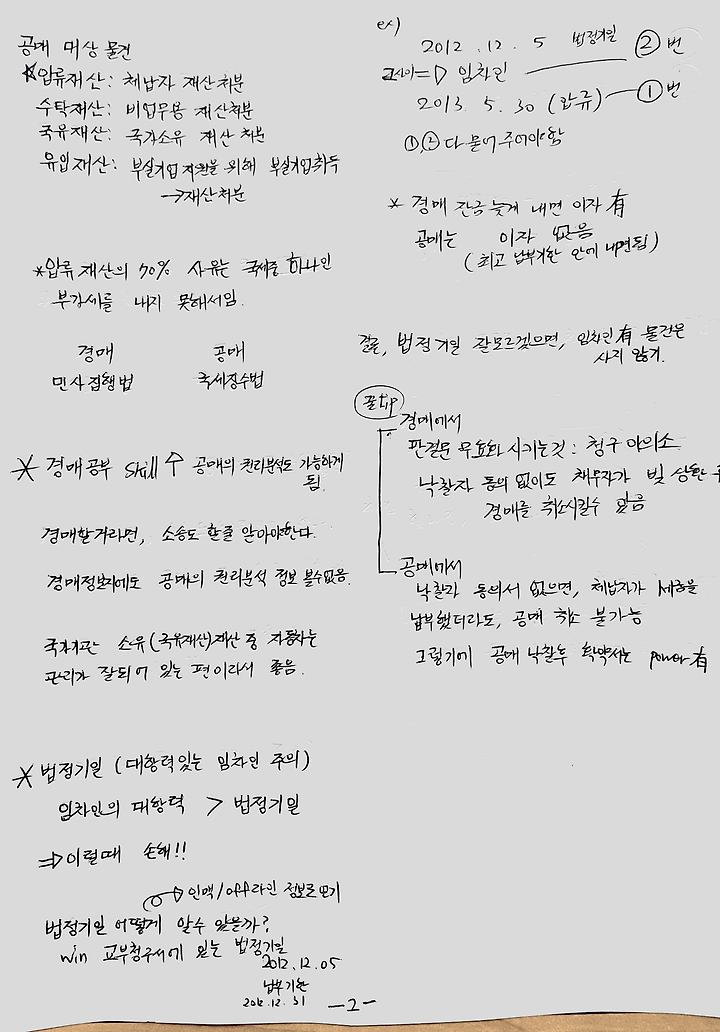 공매 대상 물건
*압류재산: 체납자 재산처분
수탁재산: 비업무용 재산처분
국유재산: 국가소유 재산 처분
유입재산: 부실기업 지원을 위해 부실기업취득
→재산처분
*압류 재산의 70% 사유는 국세중 하나인
부가세를 내지 못해서임.
경매 공매
민사집행법 국세징수법
* 경매공부 skill ↑ 공매의 권리분석도 가능하게
됨.
경매할거라면, 소송도 할줄 알아야한다.
경매정보지에도 공매의 권리분석 정보 볼수없음.
국가기관 소유(국유재산)재산 중 자동차는
관리가 잘되어 있는 편이라서 좋음.
* 법정기일 (대항력있는 임차인 주의)
임차인의 대항력 > 법정기일
⇒이럴때 손해!!
인맥/off라인 정보로 얻기
법정기일 어떻게 알수 있을까?
win 교부청구서에 있는 법정기일
2012.12.05
납부기한
2012.12.31
-2-
ex)
2012.12.5 법정기일 ② 번
그사이⇒ 임차인
2013.5.30 (압류) ① 번
①,② 다 물어주어야함
* 경매 잔금 늦게 내면 이자 有
공매는 이자 없음
(최고 납부기한 안에 내면됨)
결론, 법정기일 잘모르겠으면, 임차인有 물건은
사지 않기.
꿀tip
경매에서
판결문 무효화 시키는것: 청구 이의소
낙찰자 동의 없이도 채무자가 빚 상환
경매를 취소시킬수 있음
공매에서
낙찰자 동의서 없으면, 체납자가 세금을
납부했더라도, 공매 취소 불가능
그렇기에 공매 낙찰후 확약서는 power有